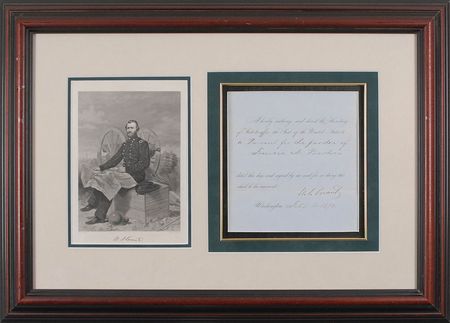 U.S. Grant
I hereby authorize and direct the Secretary
of State to affix the Seal of the United States to
a Warrant for the pardon of
dated this day and signed by me and for so doing this
shall be his warrant.
U.S. Grant
Washington